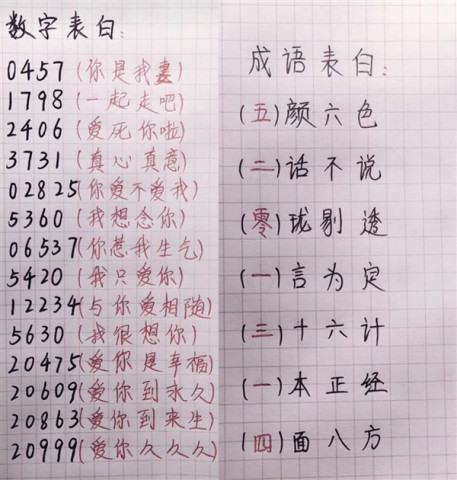 数字表白:
0457(你是我妻)
1798(一起走吧)
2406(爱死你啦)
3731(真心真意)
02825(你爱不爱我)
5360(我想念你)
06537(你惹我生气)
5420(我只爱你)
12234(与你爱相随)
5630(我很想你)
20475(爱你是幸福)
20609(爱你到永久)
20863(爱你到来生)
20999(爱你久久久)
成语表白:
(五)颜六色
(二)话不说
(零)珑剔透
(一)言为定
(三)十六计
(一)本正经
(四)面八方